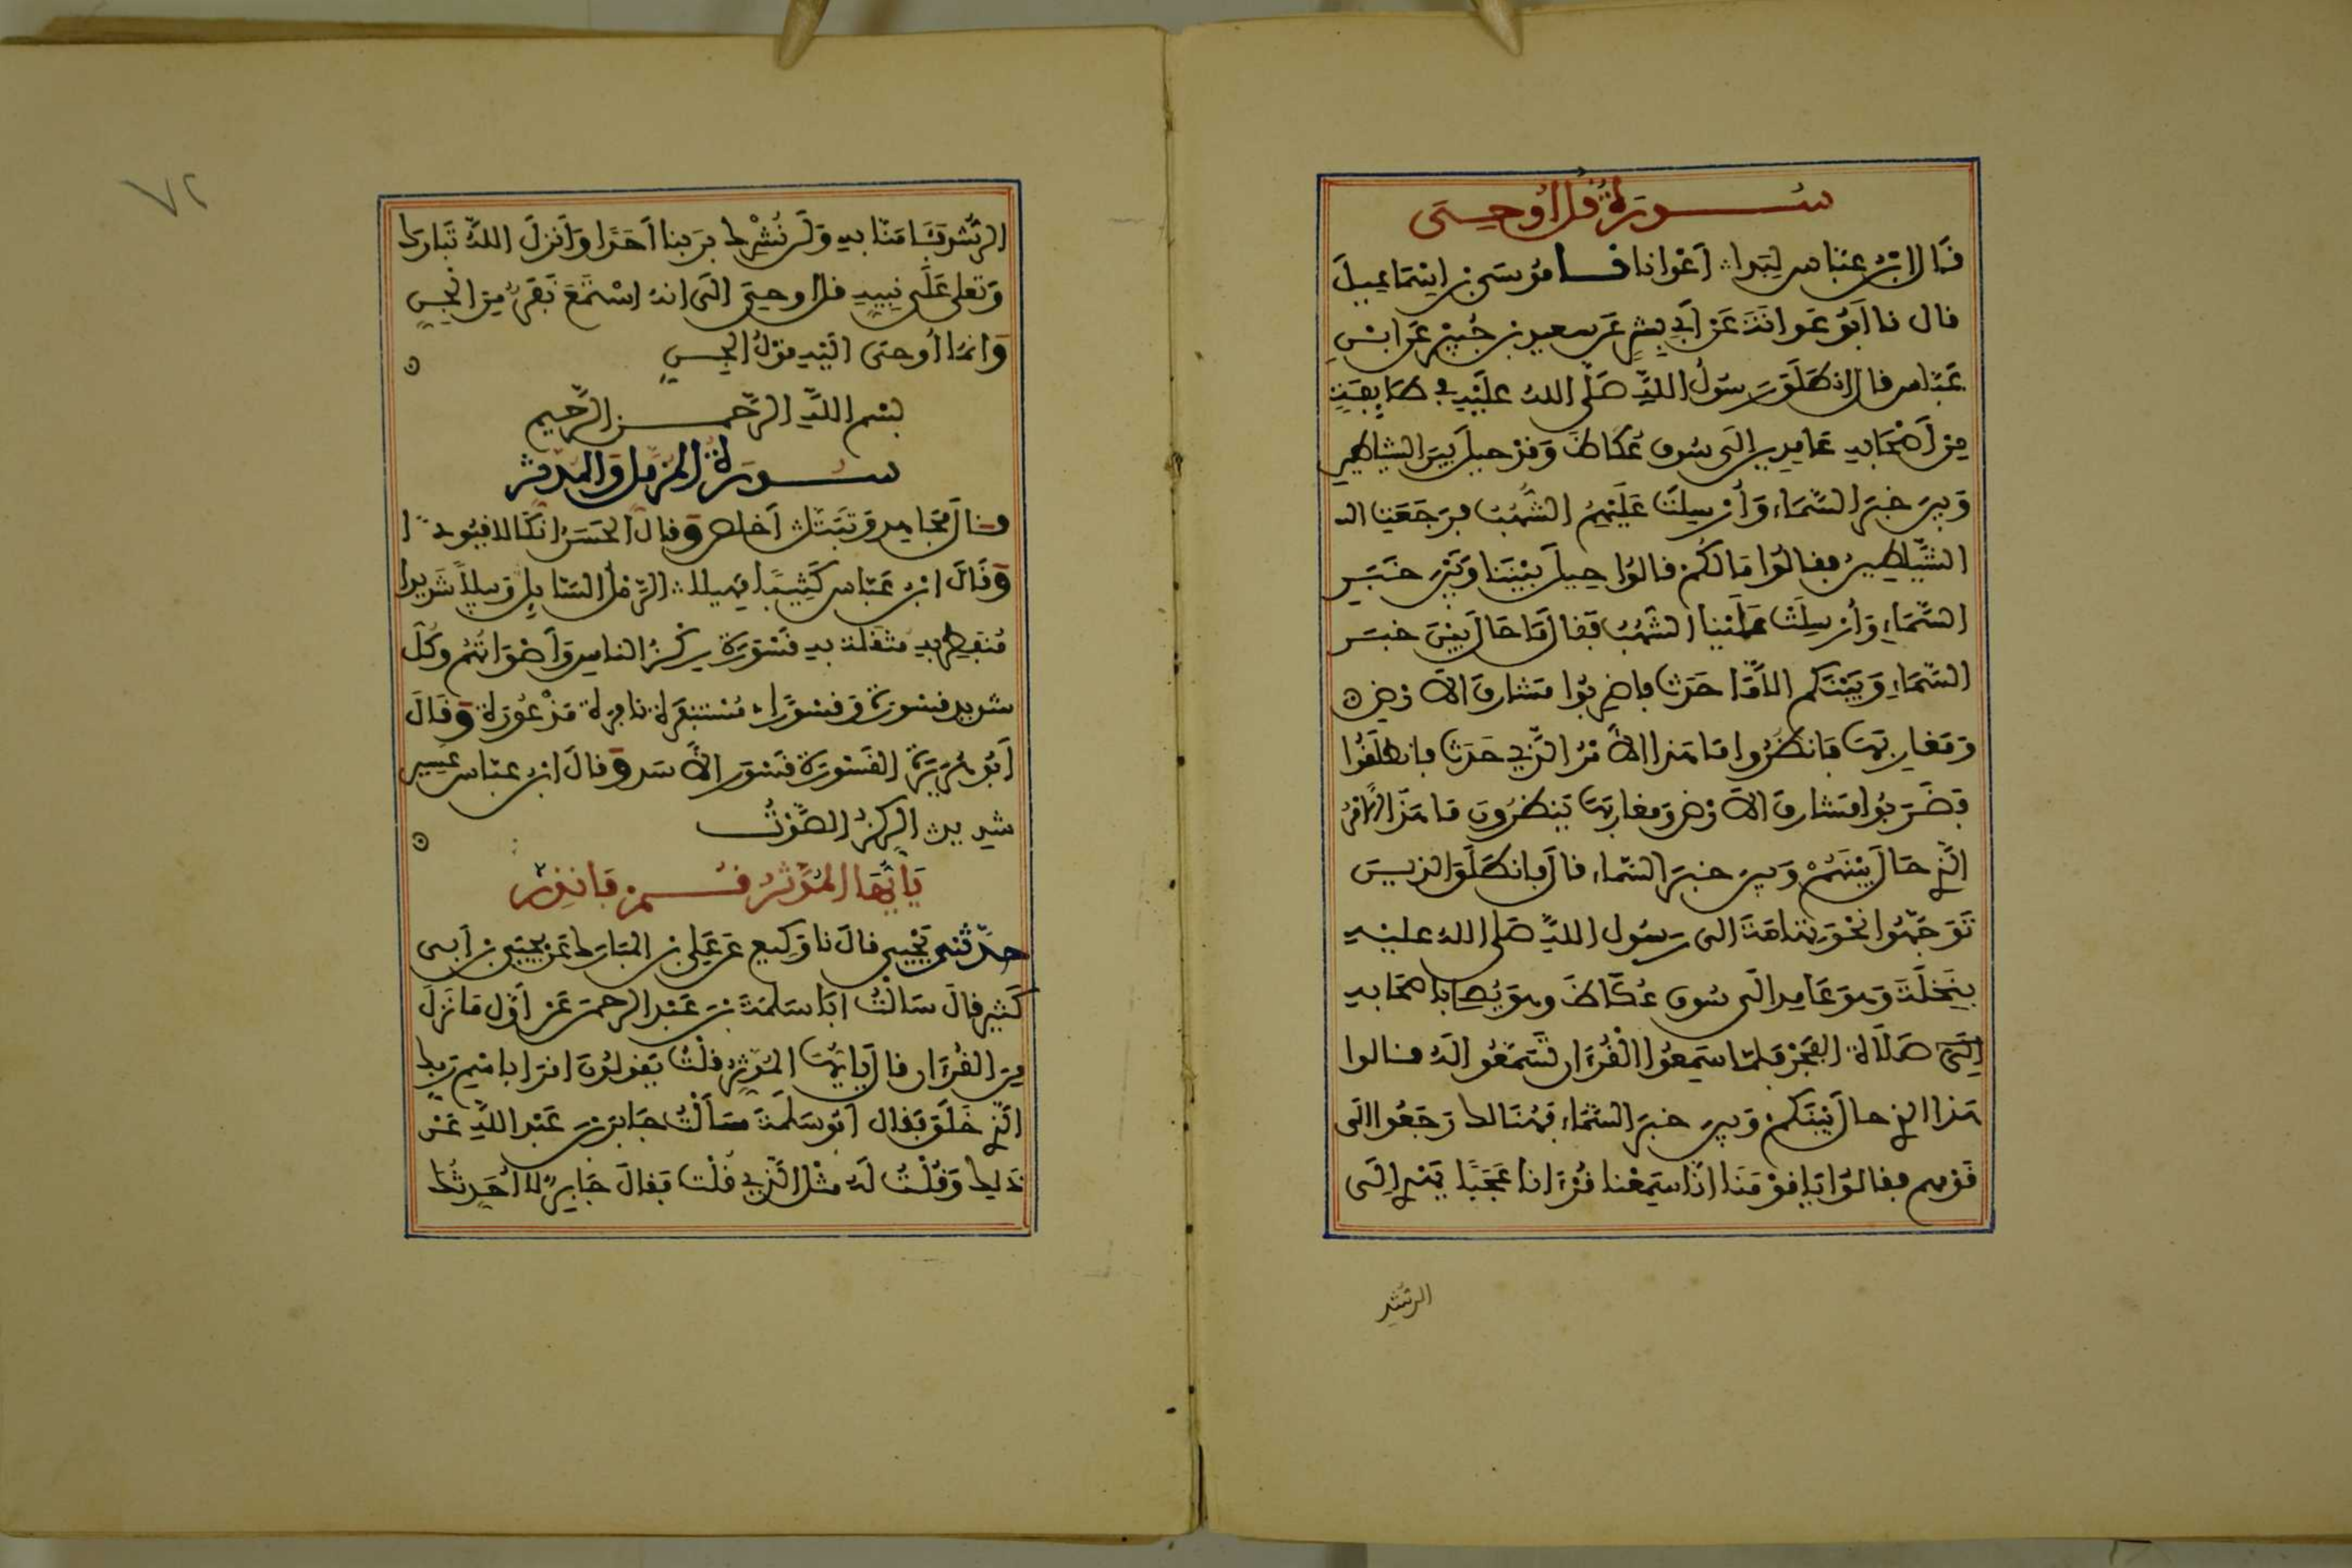 سورة قل أوحى
قَال ابن عباس لِبَدا أعْوانا نا موسى بن إسماعيل
قال نا أبو عوانة عن أبي بشر عن سعيد بن جُبير عن ابن
عباس قال انطلق رسول الله صلى الله عليه في طايفة
من أصحابه عامدين إلى سوق عكاظ وقد حيل بين الشياطين
وبين خبر السماء وأرسلت عليهم الشهب فرجعت الـ
الشيطين فقالوا ما لكم قالوا حيل بيننا وبين خبر
السماء وأرسلت علينا الشهب فقال ما حال بين خبر
السماء وبينكم الا ما حدث فاضربوا مشارق الارض
ومغاربها فانظروا ما هذا الامر الذي حدث فانطلقوا
فضربوا مشارق الارض ومغاربها ينظرون ما هذا الامر
الذي حال بينهم وبين خبر السماء قال فانطلق الذين
توجهوا نحو تهامة الى رسول الله صلى الله عليه
بنخلة وهو عامد الى سوق عكاظ وهو يُصلي باصحابه
صلاة الفجر فلما سمعوا القرءان تسمعوا له فقالوا
هذا الذي حال بينكم وبين خبر السماء فهنالك رجعوا الى
قومهم فقالوا يا قومنا انا سمعنا قرءانا عجبا يهدي إلى
الرشد
٧٢
الرشد فامنا به ولن نشرك بربنا احدا وانزل الله تبارك
وتعلى على نبيه قل اوحي الي انه استمع نفر من الجن
وانما أوحى اليه قول الجن
بسم الله الرحمن الرحيم
سورة المزمل والمدثر
وقال مجاهد وتبتل اخلص وقال الحسن انكالا قيودا
وقال ابن عباس كثيبا مهيلا الرمل السايل وبيلا شديدا
منفطر به مثقلة به قسورة ركز الناس وأصواتهم وكل
شديد قسورة وقسورا مستنفرة نافرة مذعورة وقال
أبو هريرة القسورة قسور الاسد وقال ابن عباس عسير
شديد الركز الصوت
يأيها المدثر قم فانذر
حدثني يحيى قال نا وكيع عن علي بن المبارك عن يحيى بن أبي
كثير قال سالت ابا سلمة بن عبد الرحمن عن أول ما نزل
من القرءان قال يايها المدثر قلت يقولون اقرا باسم ربك
الذي خلق فقال ابو سلمة سألت جابر بن عبد الله عن
ذلك وقلت له مثل الذي قلت فقال جابر لا احدثك